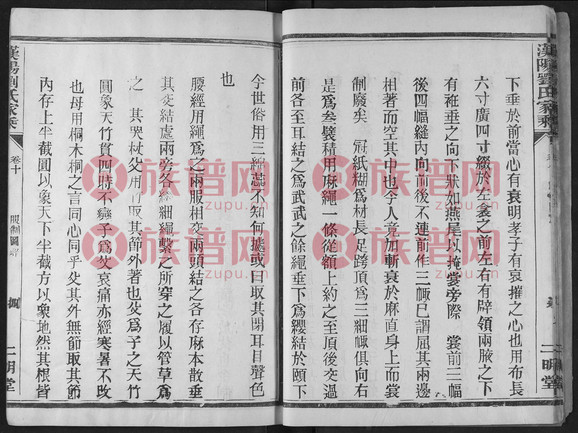 漢陽劉氏家乘
下垂於前當心有衰明孝子有哀摧之心也用布長
六寸廣四寸綴於左衾之前左右有辟領兩腋之下
有衽垂之向下狀如燕尾以掩裳旁際 裳前三幅
後四幅縫內向前後不連前作三㡇巳謂屈其兩邊
相著而空其中也今人竟加斬衰於麻直身上而裳
制廢矣 冠紙糊爲材長足跨頂爲三細㡇俱向右
是爲叁襞積用麻繩一條從額上約之至頂後交過
前各至耳結之爲武武之餘繩垂下爲纓結於頤下
二明堂
今世俗用三綿蕊不知何據或曰取其閉耳目聲色
也
腰絰用繩爲之兩股相交兩頭結之各存麻本散垂
其交結處兩旁各綴細繩繫之所穿之履以管草爲
之 其哭杖父用竹取其節外著也父爲子之天竹
圓象天竹貫四時不變子爲父哀痛亦經寒暑不改
也母用桐木桐之言同心同乎父其外無節取其節
內存上半截圓以象天下半截方以象地然其根皆
漢陽劉氏家乘
卷十
服制圖
二明堂
族谱网
zupu.cn
族谱网
zupu.cn
族谱网
zupu.cn
族谱网
zupu.cn